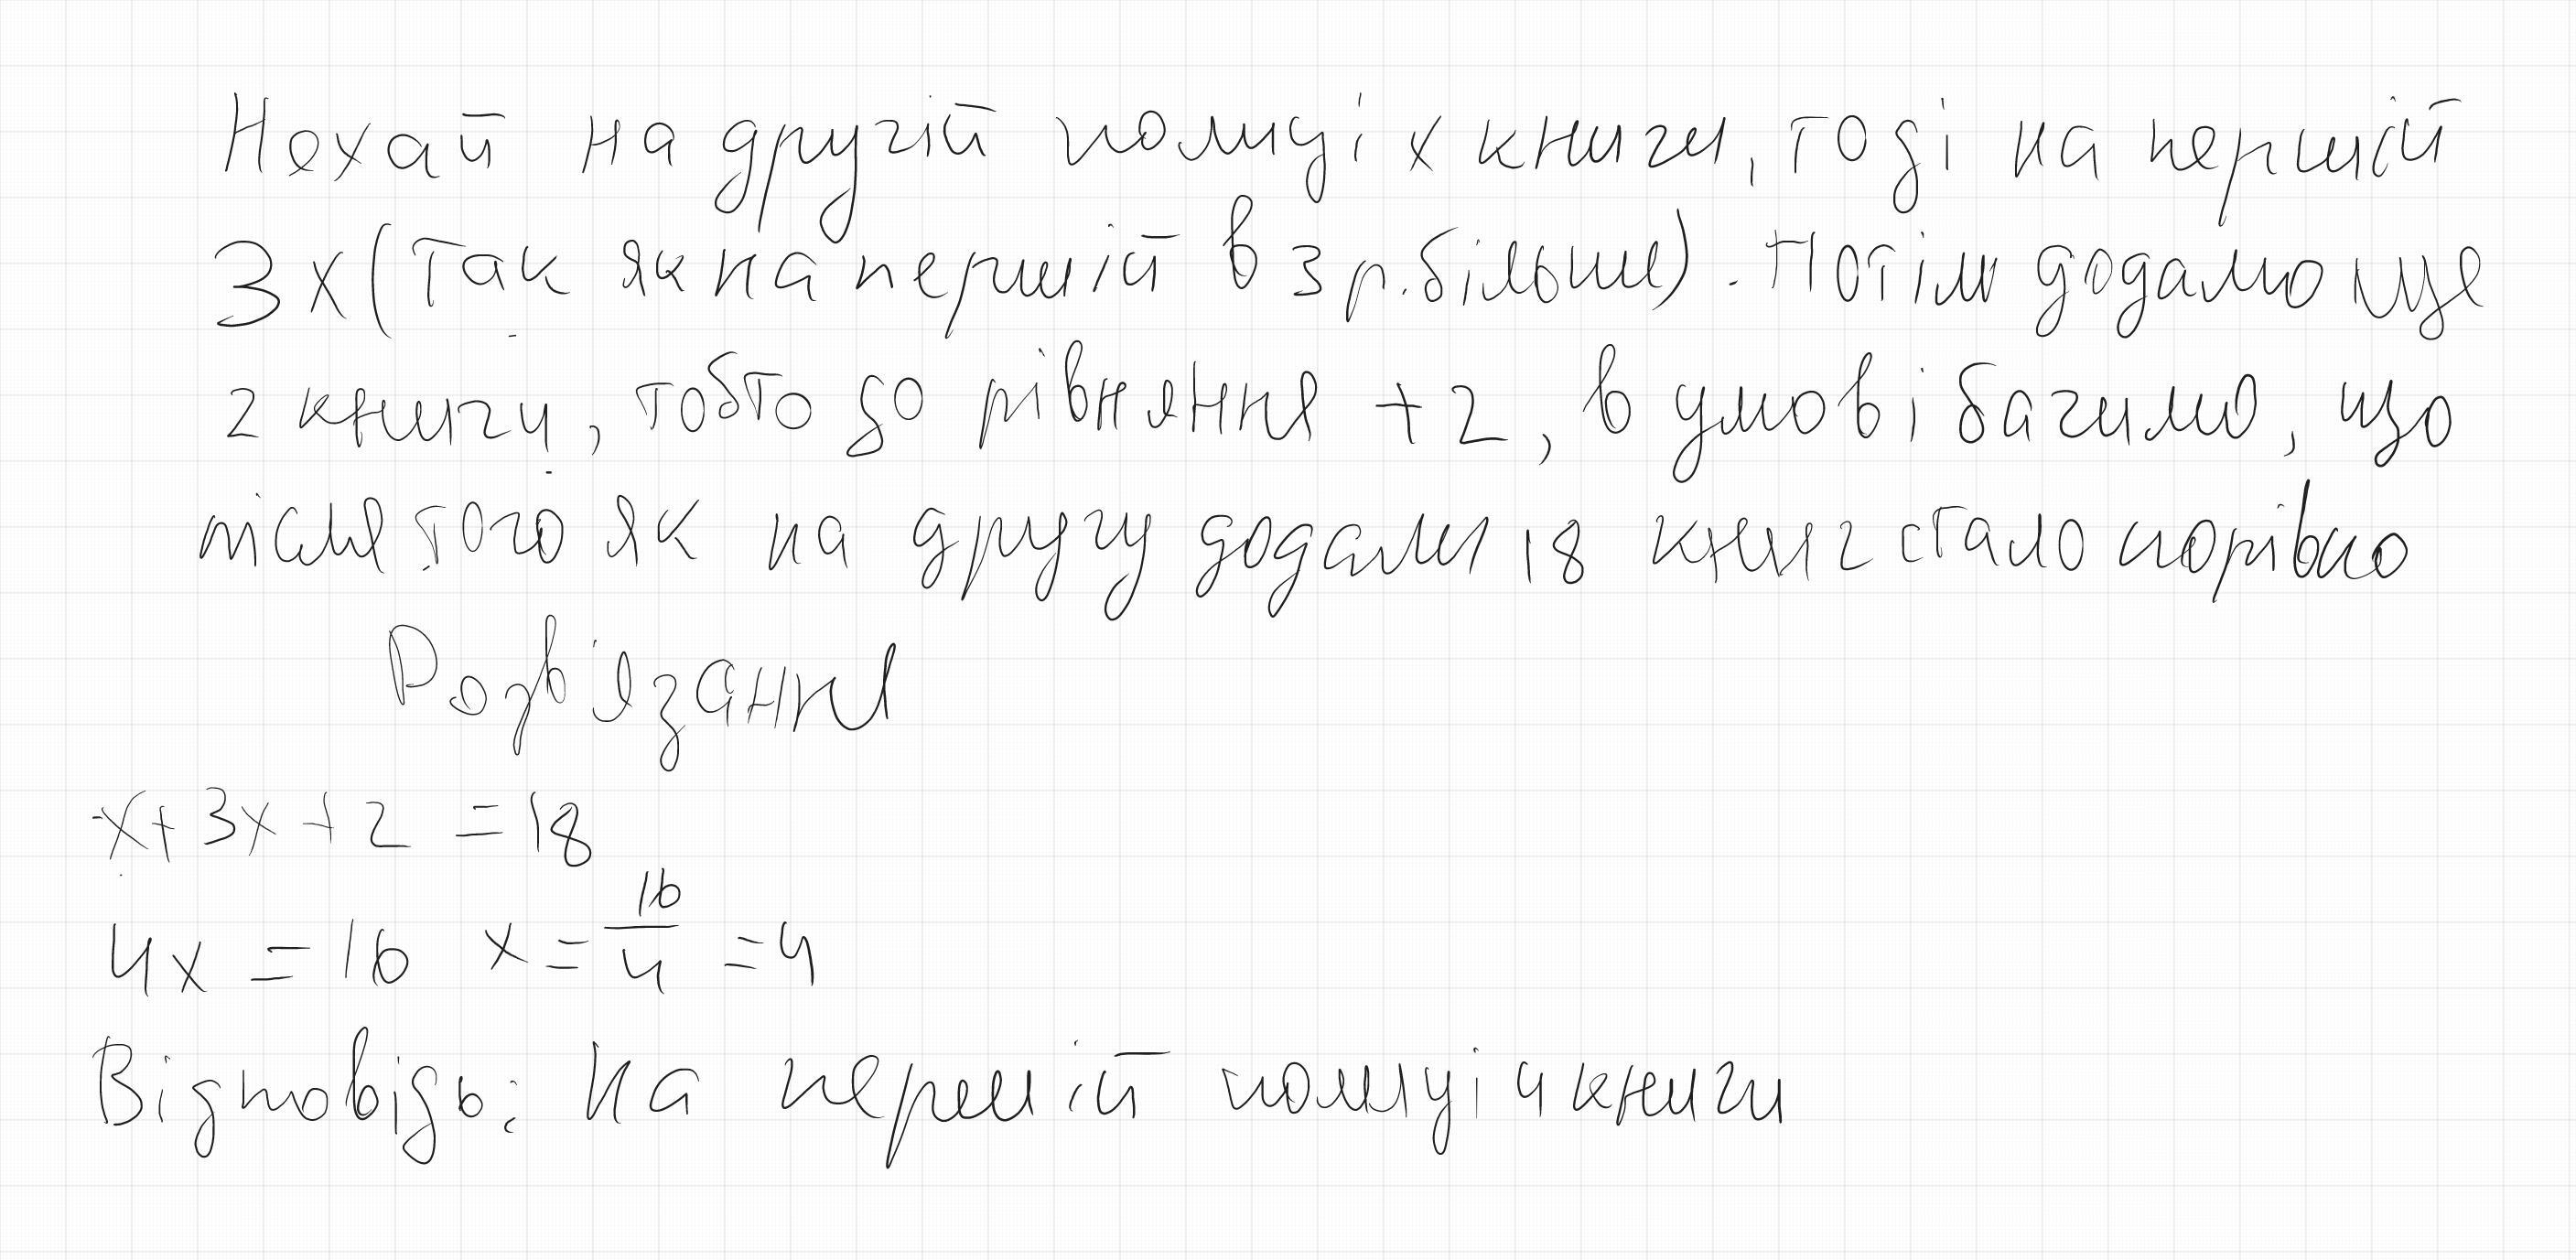 Нехай на другій полиці х книги, тоді на першій
3х (так як на першій в 3 р. більше). Потім додамо ще
2 книги, тобто до рівняння +2, в умові бачимо, що
після того як на другу додали 18 книг стало порівно
Розв'язання
х+3х+2 =18
4х = 16 х = 16/4 =4
Відповідь: на першій полиці 4 книги